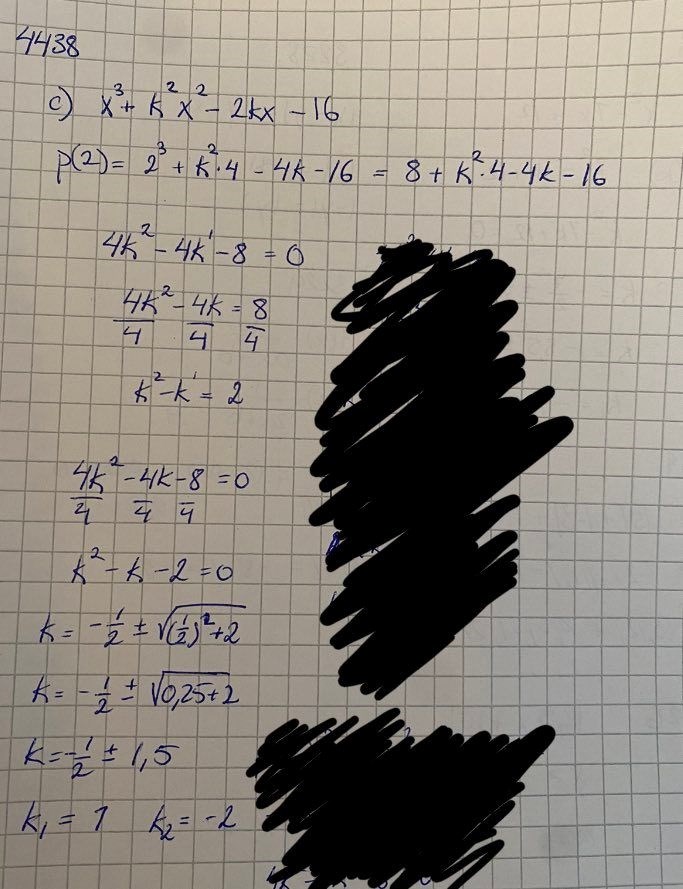 4438
c) x³ + k²x² - 2kx - 16
p(2) = 2³ + k²·4 - 4k - 16 = 8 + k²·4 - 4k - 16
4k² - 4k' - 8 = 0
4k²/4 - 4k/4 = 8/4
k² - k' = 2
4k²/4 - 4k/4 - 8/4 = 0
k² - k - 2 = 0
k = -1/2 ± √((1/2)² + 2)
k = -1/2 ± √(0,25 + 2)
k = -1/2 ± 1,5
k₁ = 1 k₂ = -2